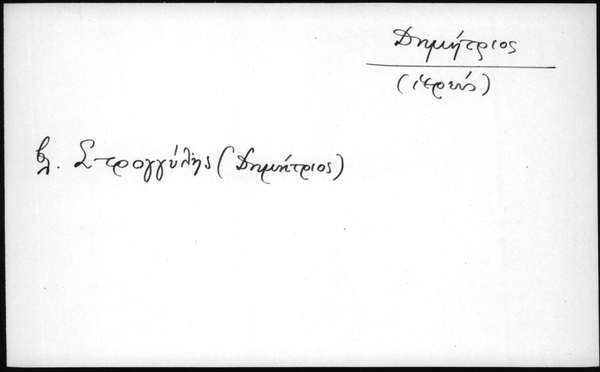 Δημήτριος
(ἱερεύς)
βλ. Στρογγύλης (Δημήτριος)